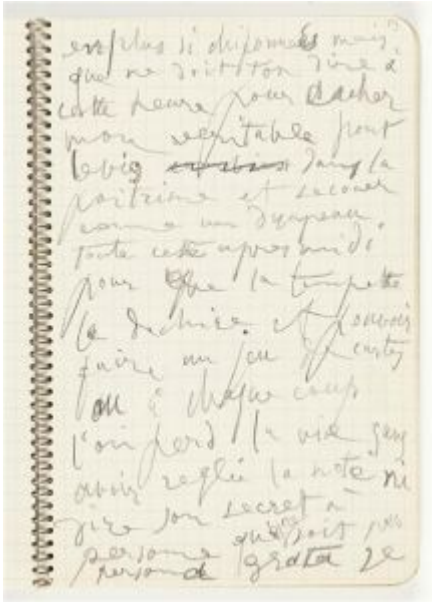 en plus si chifonnées mais
que ne doit-on dire à
cette heure pour cacher
mon veritable pont
levis dans la
poitrine et secouer
comme un drapeau
toute cette apres midi
pour que la trompette
le dechire et pouvoir
faire un jeu de cartes
ou à chaque coup
l'on perd la vie sans
avoir reglé la note ni
dire son secret à
personne qui soit
persona grata je